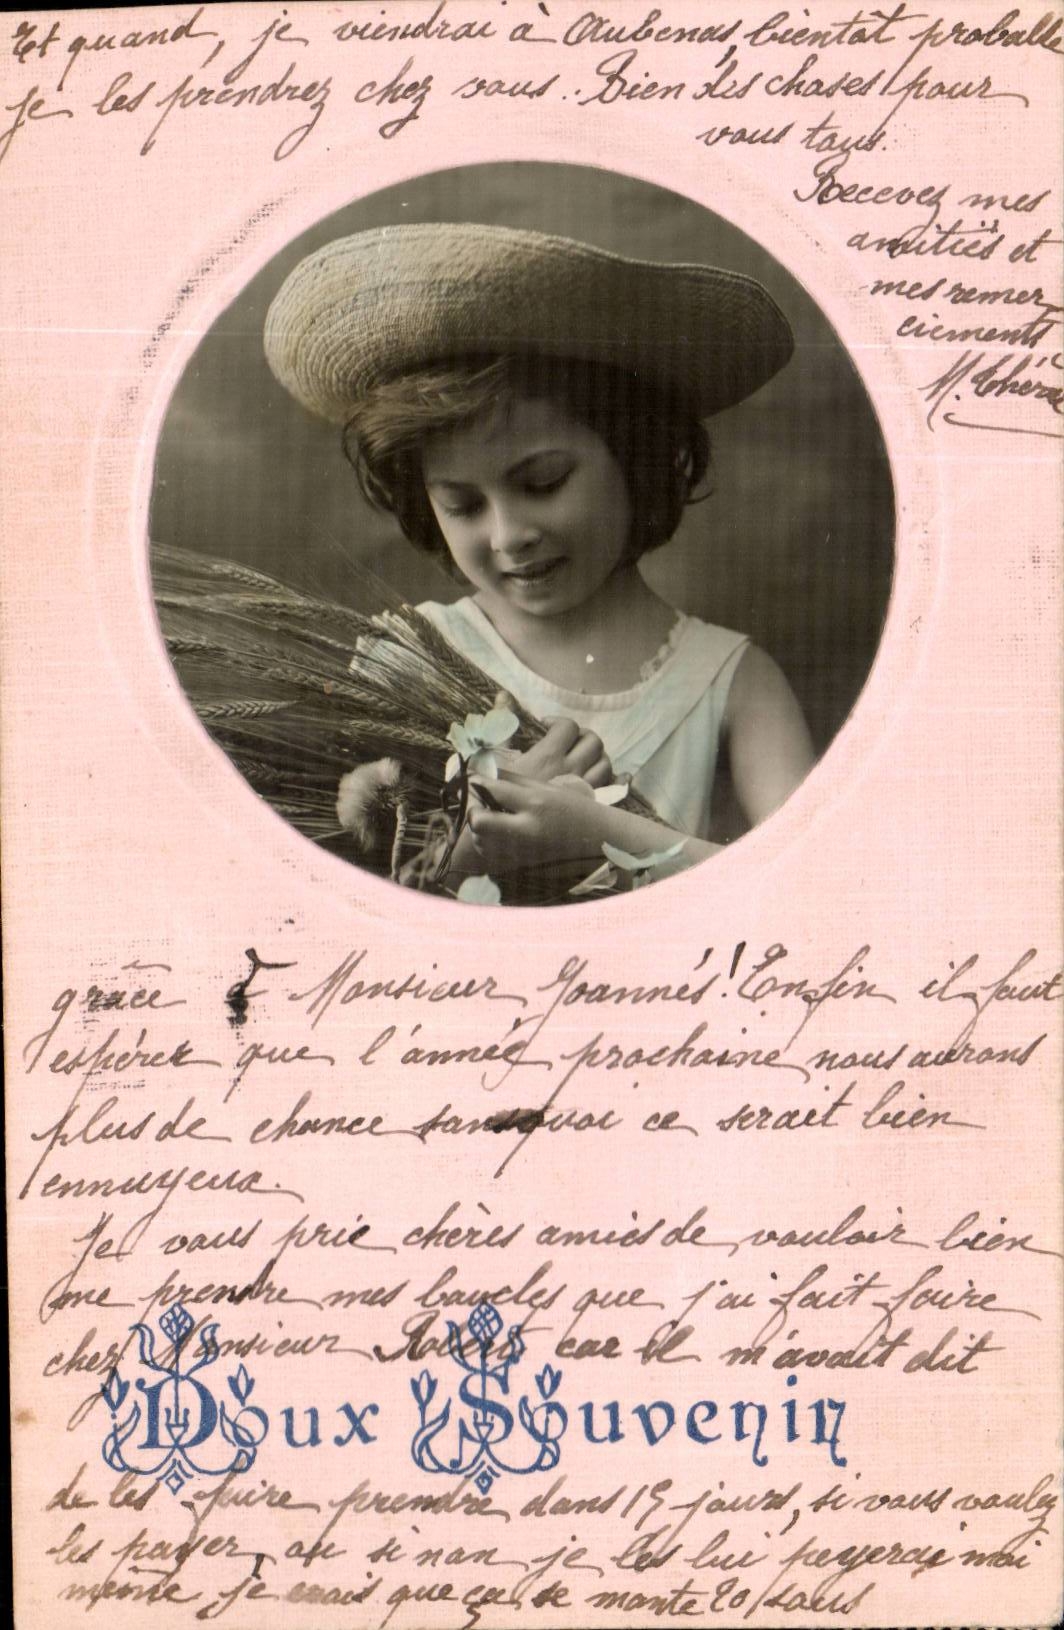 Et quand, je viendrai à Aubenas, bientôt probable
je les prendrez chez vous. Bien des choses pour
vous tous.
Recevez mes
amitiés et
mes remer
ciements
M. Thérèse
grâce à Monsieur Joannés! Enfin il faut
espérer que l'année prochaine nous aurons
plus de chance sans quoi ce serait bien
ennuyeux.
Je vous prie chères amies de vouloir bien
me prendre mes boucles que j'ai fait faire
chez Monsieur Robert car il m'avait dit
Doux Souvenir
de les faire prendre dans 15 jours, si vous voulez
les payer, ou si non je les lui peyerai moi
même, je crois que ça se monte 20 sous